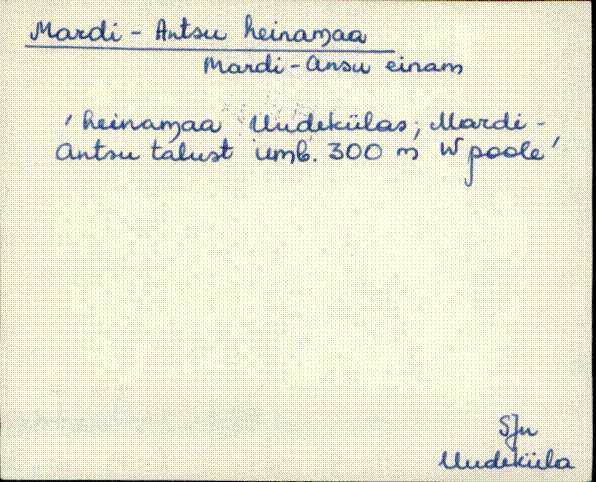 Mardi-Antsu heinamaa
Mardi-Ansu einam
'heinamaa Uudekülas, Mardi-
Antsu talust umb. 300 m W poole'
SJn
Uudeküla